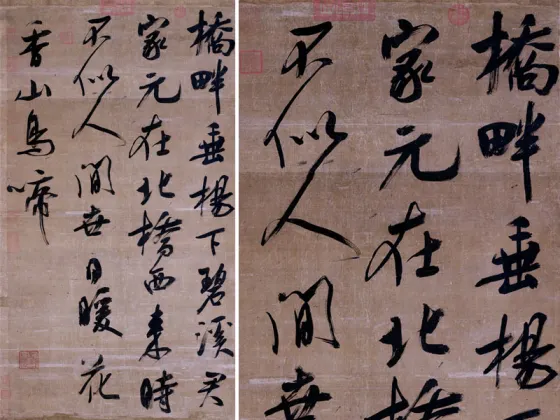 橋畔垂楊下碧溪君
家元在北橋西來時
不似人間世日暖花
香山鳥啼
橋畔垂楊
家元在北橋
不似人間世